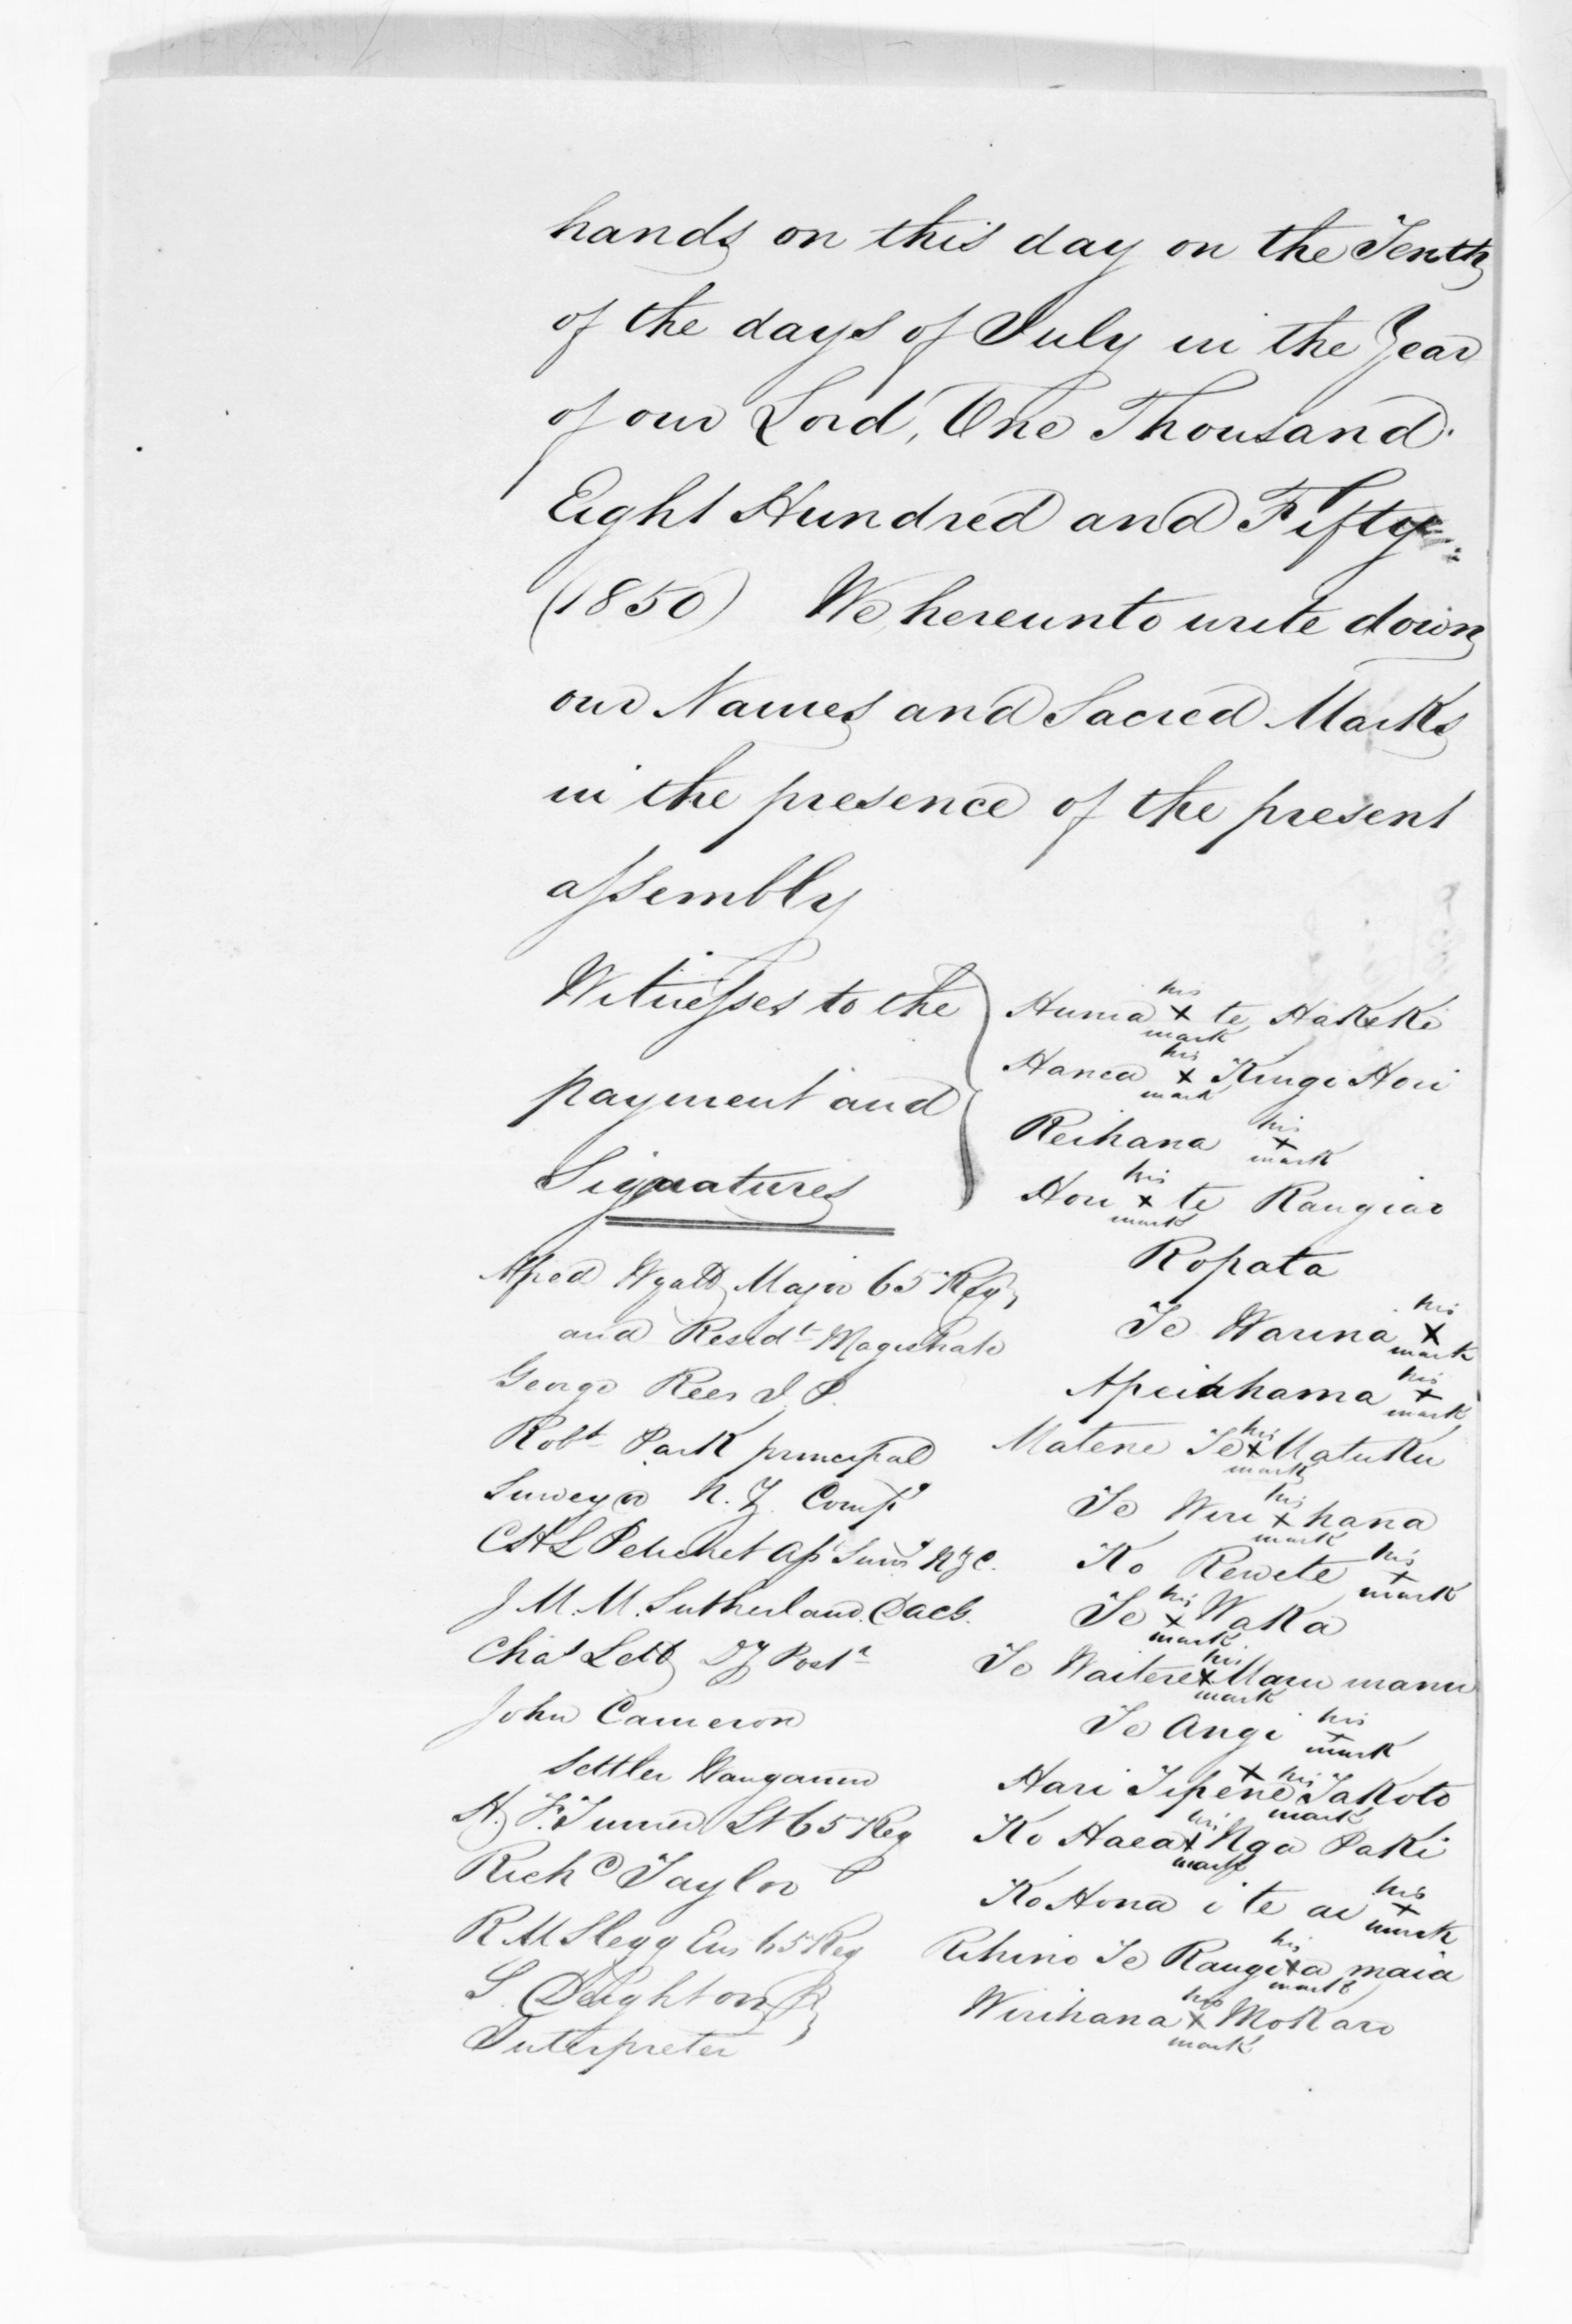 hands on this day on the Tenth
of the days of July in the Year
of our Lord, One Thousand
Eight Hundred and Fifty
(1850) We hereunto write down
our Names and Sacred Marks
in the presence of the present
assembly
Witnesses to the
payment and
Signatures
Alfred Wyatt Major 65 Regt,
and Residt Magistrate
George Rees J. P.
Robt Park principal
Surveyor N. Z. Compy
CHL Pelichet Ast Survr NZC.
J. M. M. Sutherland
Chas Lett Dy Postr
John Cameron
Settler Wanganui
H. F. Turner Lt 65 Reg
Richd Taylor
R M Slegg Ens 65 Reg
S. Deighton
Interpreter
Hunia his x mark te Hakeke
his x mark Kingi Hori
Reihana his x mark
Hori his x mark te Rangiao
Ropata
Te Warina his x mark
Apeiahama his x mark
Matene Te his x mark Matuku
Te Wiri his x mark hana
Ko Rewete his x mark
Te his x mark Waka
Te Waitere his x mark Maru manu
Te Angi his x mark
Hari Tipene x his mark Takoto
Ko Haea his x mark Nga Paki
Ko Hona i te ao his x mark
Rihino Te Rangi his x mark a maia
Wirihana his x mark Mokaro